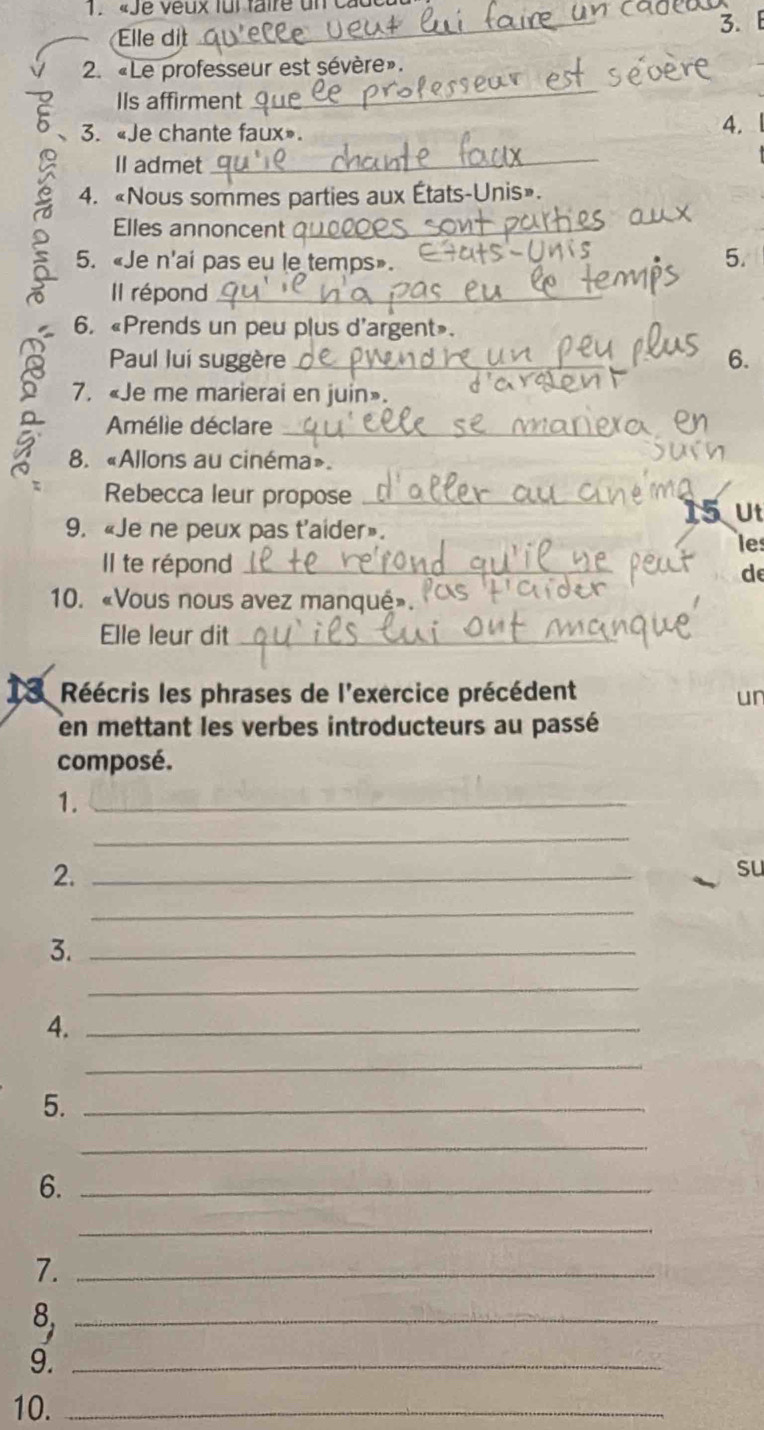 1. «Je veux lui faire un
Elle dit qu'elle veut lui faire un cadeau
3.
2. «Le professeur est sévère».
Ils affirment que le professeur est sévère
3. «Je chante faux».
4.
Il admet qu'il chante faux
4. «Nous sommes parties aux États-Unis».
Elles annoncent quelles sont parties aux
États-Unis
5. «Je n'ai pas eu le temps».
5.
Il répond qu'il n'a pas eu le temps
6. «Prends un peu plus d'argent».
Paul lui suggère de prendre un peu plus
d'argent
6.
7. «Je me marierai en juin».
Amélie déclare qu'elle se mariera en
juin
8. «Allons au cinéma».
Rebecca leur propose d'aller au cinéma
15 Ut
9. «Je ne peux pas t'aider».
les
Il te répond il te répond qu'il ne peut
pas t'aider
de
10. «Vous nous avez manqué».
Elle leur dit qu'ils lui ont manqué
può essere anche "ella disse"
13 Réécris les phrases de l'exercice précédent
un
en mettant les verbes introducteurs au passé
composé.
1.
2.
su
3.
4.
5.
6.
7.
8,
9.
10.